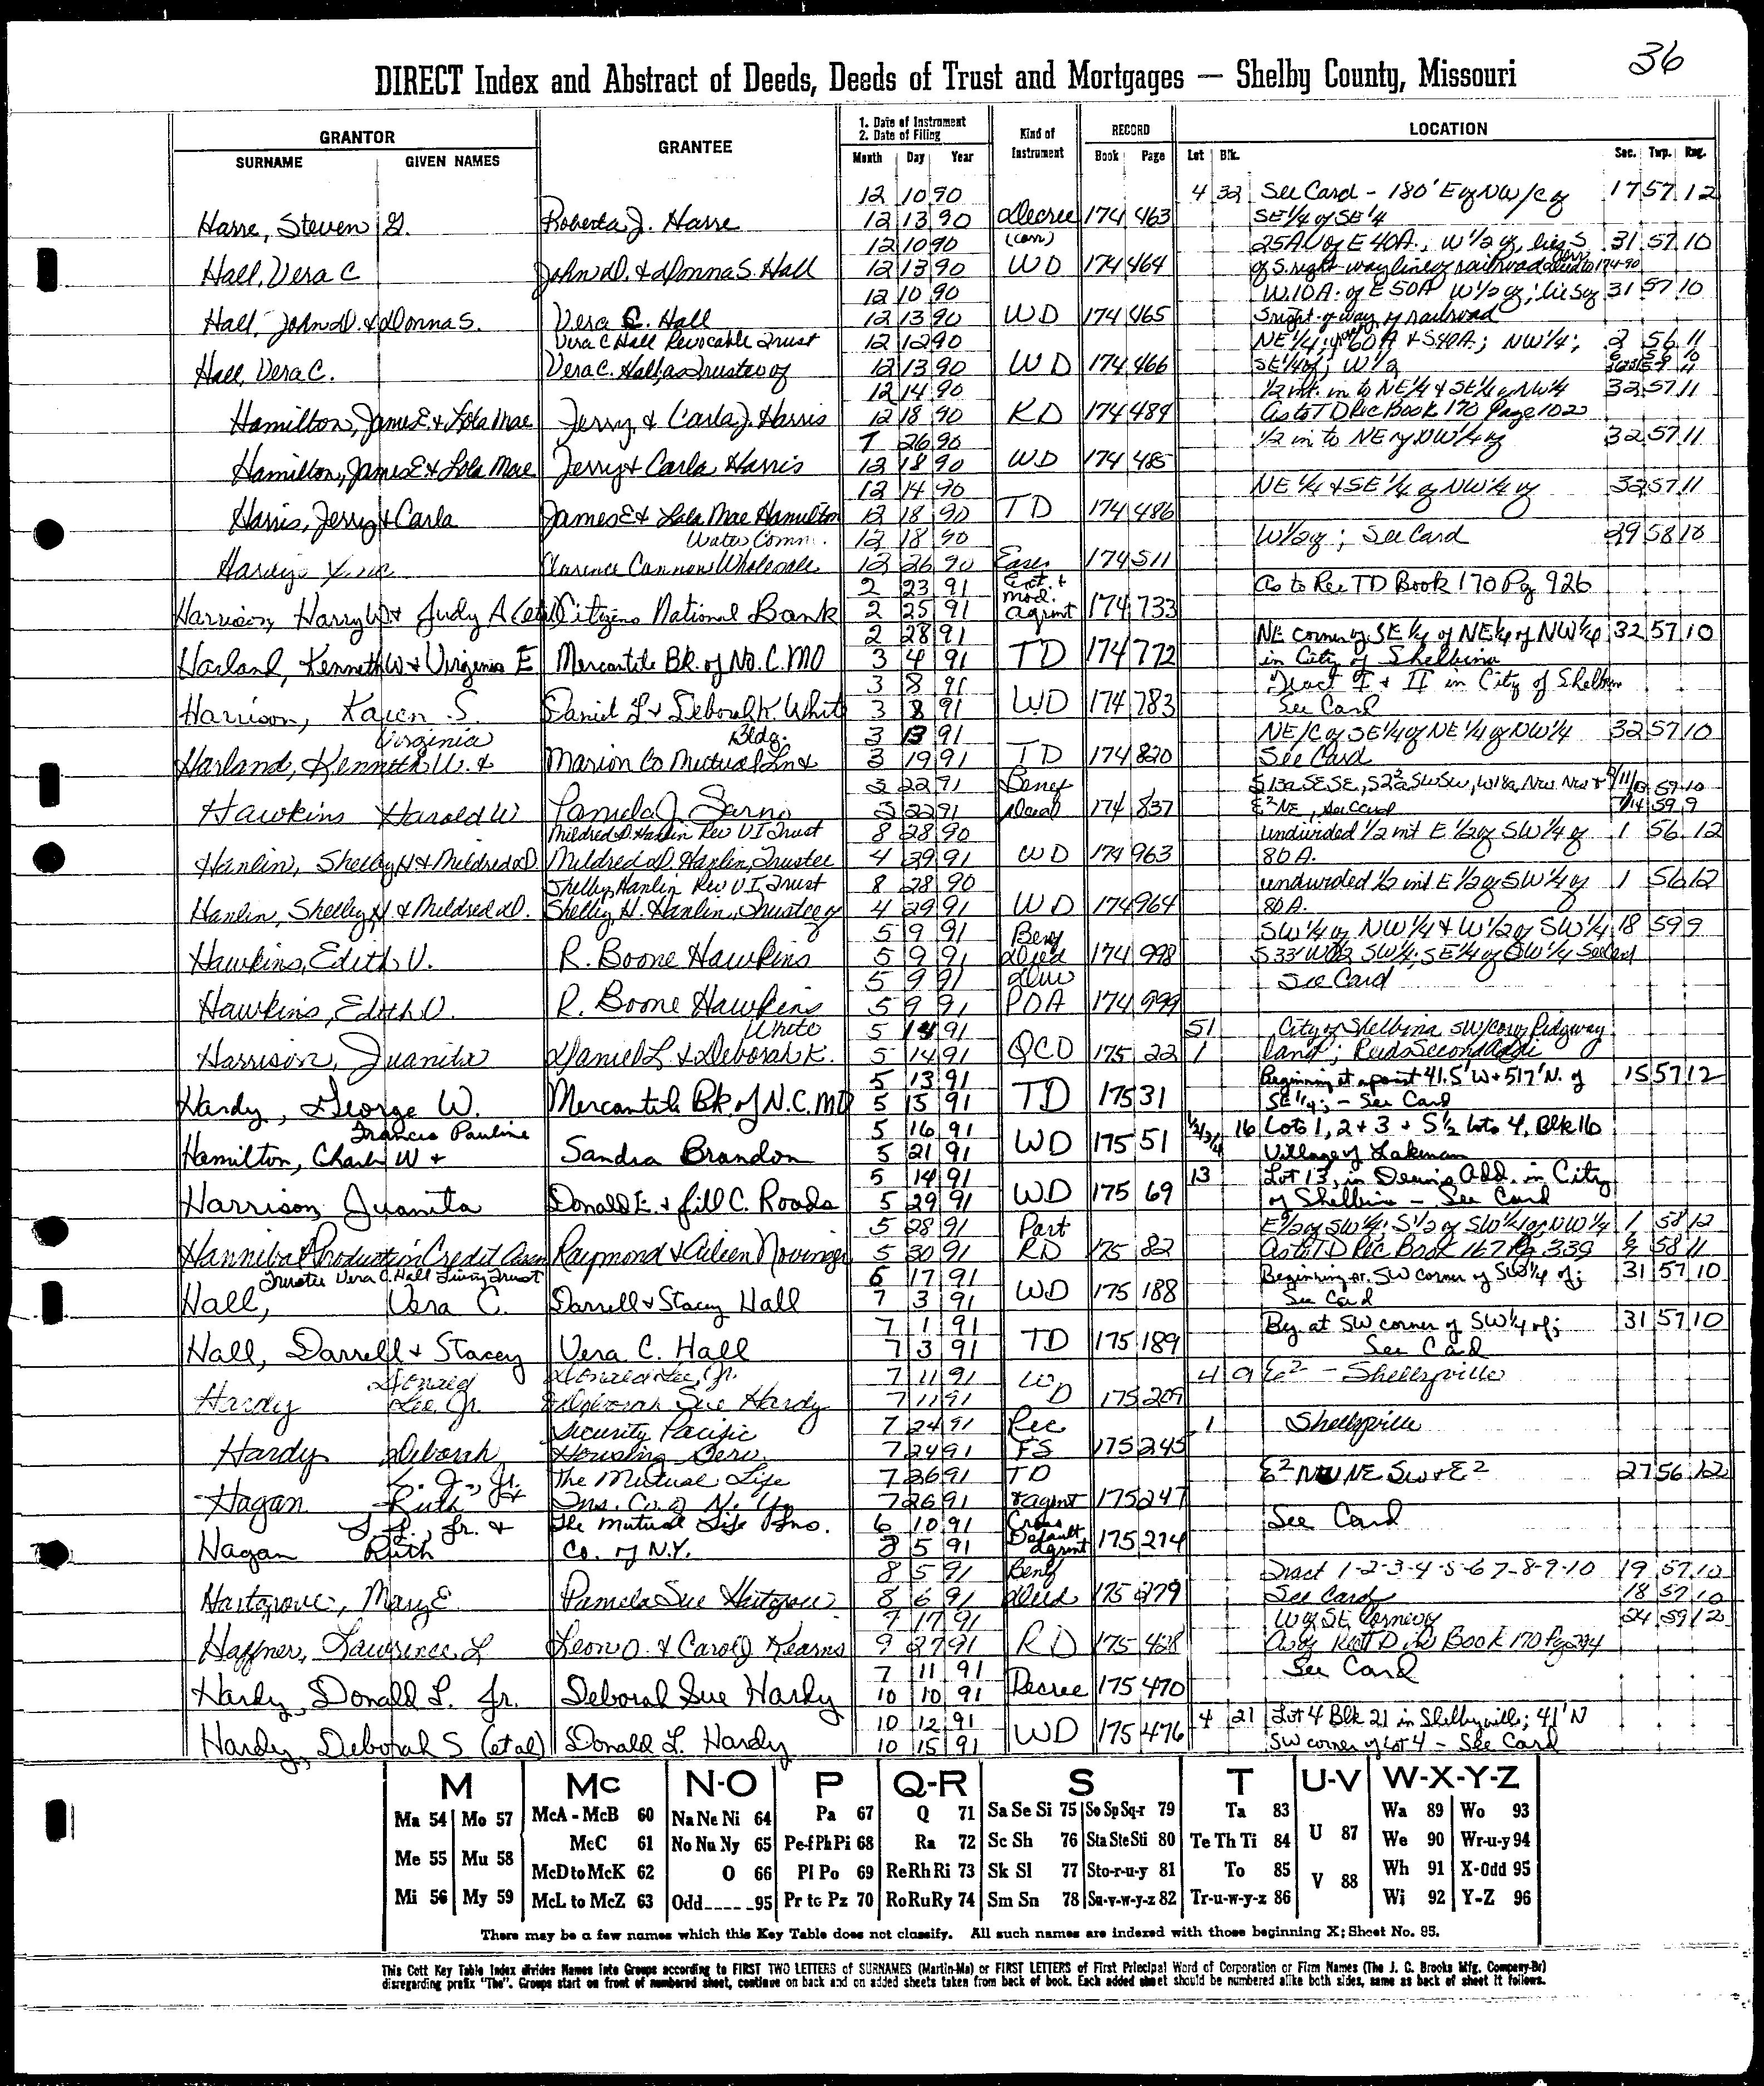 36
DIRECT Index and Abstract of Deeds, Deeds of Trust and Mortgages — Shelby County, Missouri
GRANTOR
SURNAME GIVEN NAMES
GRANTEE
1. Date of Instrument
2. Date of Filing
Month Day Year
Kind of Instrument
RECORD
Book Page
LOCATION
Lot Blk. Sec. Twp. Rng.
12 10 90 4 32 See Card - 180' E of NW/c of 17 57 12
Harre, Steven G. Roberta J. Harre 12 13 90 Decree 174 463 SE 1/4 of SE 1/4
12 10 90 (corr) 25A of E 40A.; W 1/2 of, lies S 31 57 10
Hall, Vera C John D. & Donna S. Hall 12 13 90 WD 174 464 of S. right-way line of railroad 174-90
12 10 90 W.10A. of E 50A W 1/2 of; lie S of 31 57 10
Hall, John D. & Donna S. Vera C. Hall 12 13 90 WD 174 465 S right-of-way of railroad
Vera C Hall Revocable Trust 12 12 90 NE 1/4; 60A & S40A.; NW 1/4; 2 56 11
Hall, Vera C. Vera C. Hall, as Trustee of 12 13 90 WD 174 466 SE 1/4 of; W 1/2
12 14 90 1/2 int. in to NE 1/4 & SE 1/4 of NW 1/4 32 57 11
Hamilton, James E. & Lola Mae Jerry & Carla J. Harris 12 18 90 RD 174 484 As to TD Rec Book 170 Page 102
7 26 90 1/2 in to NE of NW 1/4 of 32 57 11
Hamilton, James E & Lola Mae Jerry & Carla Harris 12 18 90 WD 174 485
12 14 90 NE 1/4 & SE 1/4 of NW 1/4 of 32 57 11
Harris, Jerry & Carla James E & Lola Mae Hamilton 12 18 90 TD 174 486
Water Comm. 12 18 90 W 1/2 of; See Card 29 58 10
Hardy Clarence Cannon Wholesale 12 26 90 Ease 174 511
2 23 91 Ext. & As to Rec TD Book 170 Pg 926
Harrison, Harry W & Judy A (etal) Citizens National Bank 2 25 91 mod. agrmt 174 733
2 28 91 NE corner of SE 1/4 of NE 1/4 of NW 1/4 32 57 10
Harland, Kenneth W & Virginia E Mercantile Bk. of No. C. MO 3 4 91 TD 174 772 in City of Shelbina
3 8 91 Tract I & II in City of Shelbina
Harrison, Karen S. Daniel L & Deborah K. White 3 8 91 WD 174 783 See Card
Virginia Bldg. 3 13 91 NE/C of SE 1/4 of NE 1/4 of NW 1/4 32 57 10
Harland, Kenneth W. & Marion Co Mutual Ln & 3 19 91 TD 174 820 See Card
3 22 91 Benef S 13a SE SE, S 2 2/3a SW SW, W 18a NW NW & 59 10
Hawkins Harold W Pamela J. Sarno 3 22 91 Deed 174 837 E2 NE, See Card 59 9
Mildred D Hanlin Rev V I Trust 8 28 90 undivided 1/2 int E 1/2 of SW 1/4 of 1 56 12
Hanlin, Shelby H & Mildred D Mildred D. Hanlin, Trustee 4 29 91 WD 174 963 80 A.
Shelby Hanlin Rev V I Trust 8 28 90 undivided 1/2 int E 1/2 of SW 1/4 of 1 56 12
Hanlin, Shelby H & Mildred D. Shelby H. Hanlin, Trustee of 4 29 91 WD 174 964 80 A.
5 9 91 Benf SW 1/4 of NW 1/4 & W 1/2 of SW 1/4 18 59 9
Hawkins, Edith V. R. Boone Hawkins 5 9 91 Deed 174 998 S 33' W 1/2 SW 1/4; SE 1/4 of SW 1/4 See Card
5 9 91 Dur See Card
Hawkins, Edith V. R. Boone Hawkins 5 9 91 POA 174 999
White 5 14 91 51 City of Shelbina SW/cor of Ridgway
Harrison, Juanita Daniel L. & Deborah K. 5 14 91 QCD 175 22 1 land; Reeds Second Addi
5 13 91 Beginning at a point 41.5' W & 517' N. of 15 57 12
Hardy, George W. Mercantile Bk. of N.C. MO 5 15 91 TD 175 31 SE 1/4; - See Card
Francis Pauline 5 16 91 1/2/3/4 16 Lots 1, 2 & 3 & S 1/2 Lots 4, Blk 16
Hamilton, Charles W & Sandra Brandon 5 21 91 WD 175 51 Village of Lakenan
5 14 91 13 Lot 13, in Dean's Add. in City
Harrison, Juanita Donald E. & Jill C. Roads 5 29 91 WD 175 69 of Shelbina - See Card
5 28 91 Part E 1/2 of SW 1/4; S 1/2 of SW 1/4 of NW 1/4 1 58 12
Hannibal Production Credit Assn Raymond & Aileen Novinger 5 30 91 RD 175 82 As to TD Rec Book 167 Pg 339 58 11
Trustee Vera C. Hall Living Trust 6 17 91 Beginning at SW corner of SW 1/4 of; 31 57 10
Hall, Vera C. Darrell & Stacey Hall 7 3 91 WD 175 188 See Card
7 1 91 Beg at SW corner of SW 1/4 of; 31 57 10
Hall, Darrell & Stacey Vera C. Hall 7 3 91 TD 175 189 See Card
Donald Donald Lee, Jr. 7 11 91 4 9 E2 - Shelbyville
Hardy Lee Jr. & Deborah Sue Hardy 7 11 91 WD 175 209
Security Pacific 7 24 91 Rec 1 Shelbyville
Hardy Deborah Housing Serv. 7 24 91 FS 175 245
The Mutual Life 7 26 91 TD E2 NW NE SW & E2 27 56 12
Hagan Ruth Ins. Co. of N. Y. 7 26 91 &agmt 175 247
Jr. & The Mutual Life Ins. 6 10 91 Cross See Card
Hagan Ruth Co. of N.Y. 8 5 91 Default Agrmt 175 274
8 5 91 Benf Tract 1-2-3-4-5-6 7-8-9-10 19 57 10
Hartgrove, Mary E. Pamela Sue Hartgrove 8 6 91 Deed 175 279 See Card 18 57 10
7 17 91 W of SE Corner of 24 59 12
Haffner, Lawrence L Leon O. & Carol J Kearns 9 27 91 RD 175 428 Book 170 Pg 294
7 11 91 See Card
Hardy, Donald L. Jr. Deborah Sue Hardy 10 10 91 Decree 175 470
10 12 91 4 21 Lot 4 Blk 21 in Shelbyville; 41' N
Hardy, Deborah S (etal) Donald L. Hardy 10 15 91 WD 175 476 SW corner of Lot 4 - See Card
M Mc N-O P Q-R S T U-V W-X-Y-Z
Ma 54 Mo 57 McA - McB 60 Na Ne Ni 64 Pa 67 Q 71 Sa Se Si 75 So Sp Sq-r 79 Ta 83 U 87 Wa 89 Wo 93
McC 61 No Nu Ny 65 Pe-f Ph Pi 68 Ra 72 Sc Sh 76 Sta Ste Sti 80 Te Th Ti 84 We 90 Wr-u-y 94
Me 55 Mu 58 McD to McK 62 O 66 Pl Po 69 Re Rh Ri 73 Sk Sl 77 Sto-r-u-y 81 To 85 V 88 Wh 91 X-Odd 95
Mi 56 My 59 McL to McZ 63 Odd 95 Pr to Pz 70 Ro Ru Ry 74 Sm Sn 78 Su-v-w-y-z 82 Tr-u-w-y-z 86 Wi 92 Y-Z 96
There may be a few names which this Key Table does not classify. All such names are indexed with those beginning X; Sheet No. 95.
This Cott Key Table Index divides Names into Groups according to FIRST TWO LETTERS of SURNAMES (Martin-Ma) or FIRST LETTERS of First Principal Word of Corporation or Firm Names (The J. C. Brooks Mfg. Company-Br)
disregarding prefix "The". Groups start on front of numbered sheet, continue on back and on added sheets taken from back of book. Each added sheet should be numbered alike both sides, same as back of sheet it follows.